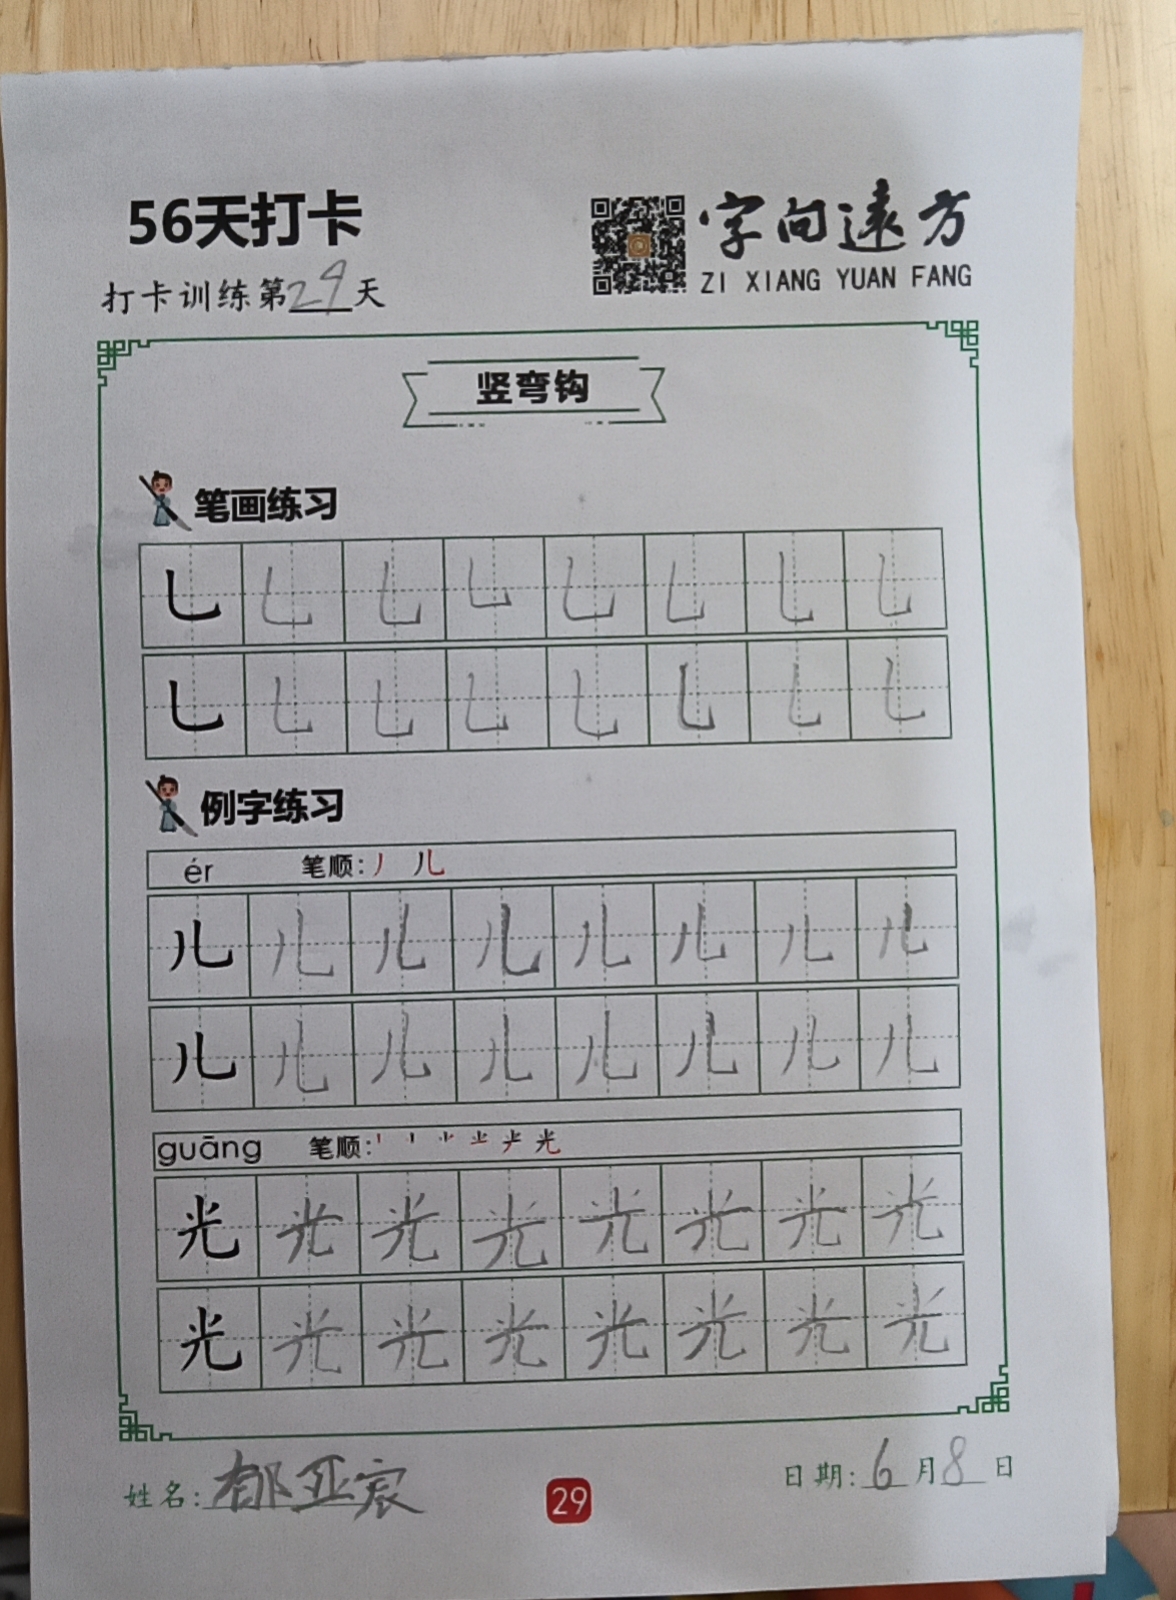 56天打卡
字向遠方
ZI XIANG YUAN FANG
打卡训练第29天
竖弯钩
笔画练习
乚 乚 乚 乚 乚 乚 乚 乚
乚 乚 乚 乚 乚 乚 乚 乚
例字练习
ér 笔顺:丿 儿
儿 儿 儿 儿 儿 儿 儿 儿
儿 儿 儿 儿 儿 儿 儿 儿
guāng 笔顺: 光
光 光 光 光 光 光 光 光
光 光 光 光 光 光 光 光
姓名:郁亚宸
29
日期:6月8日